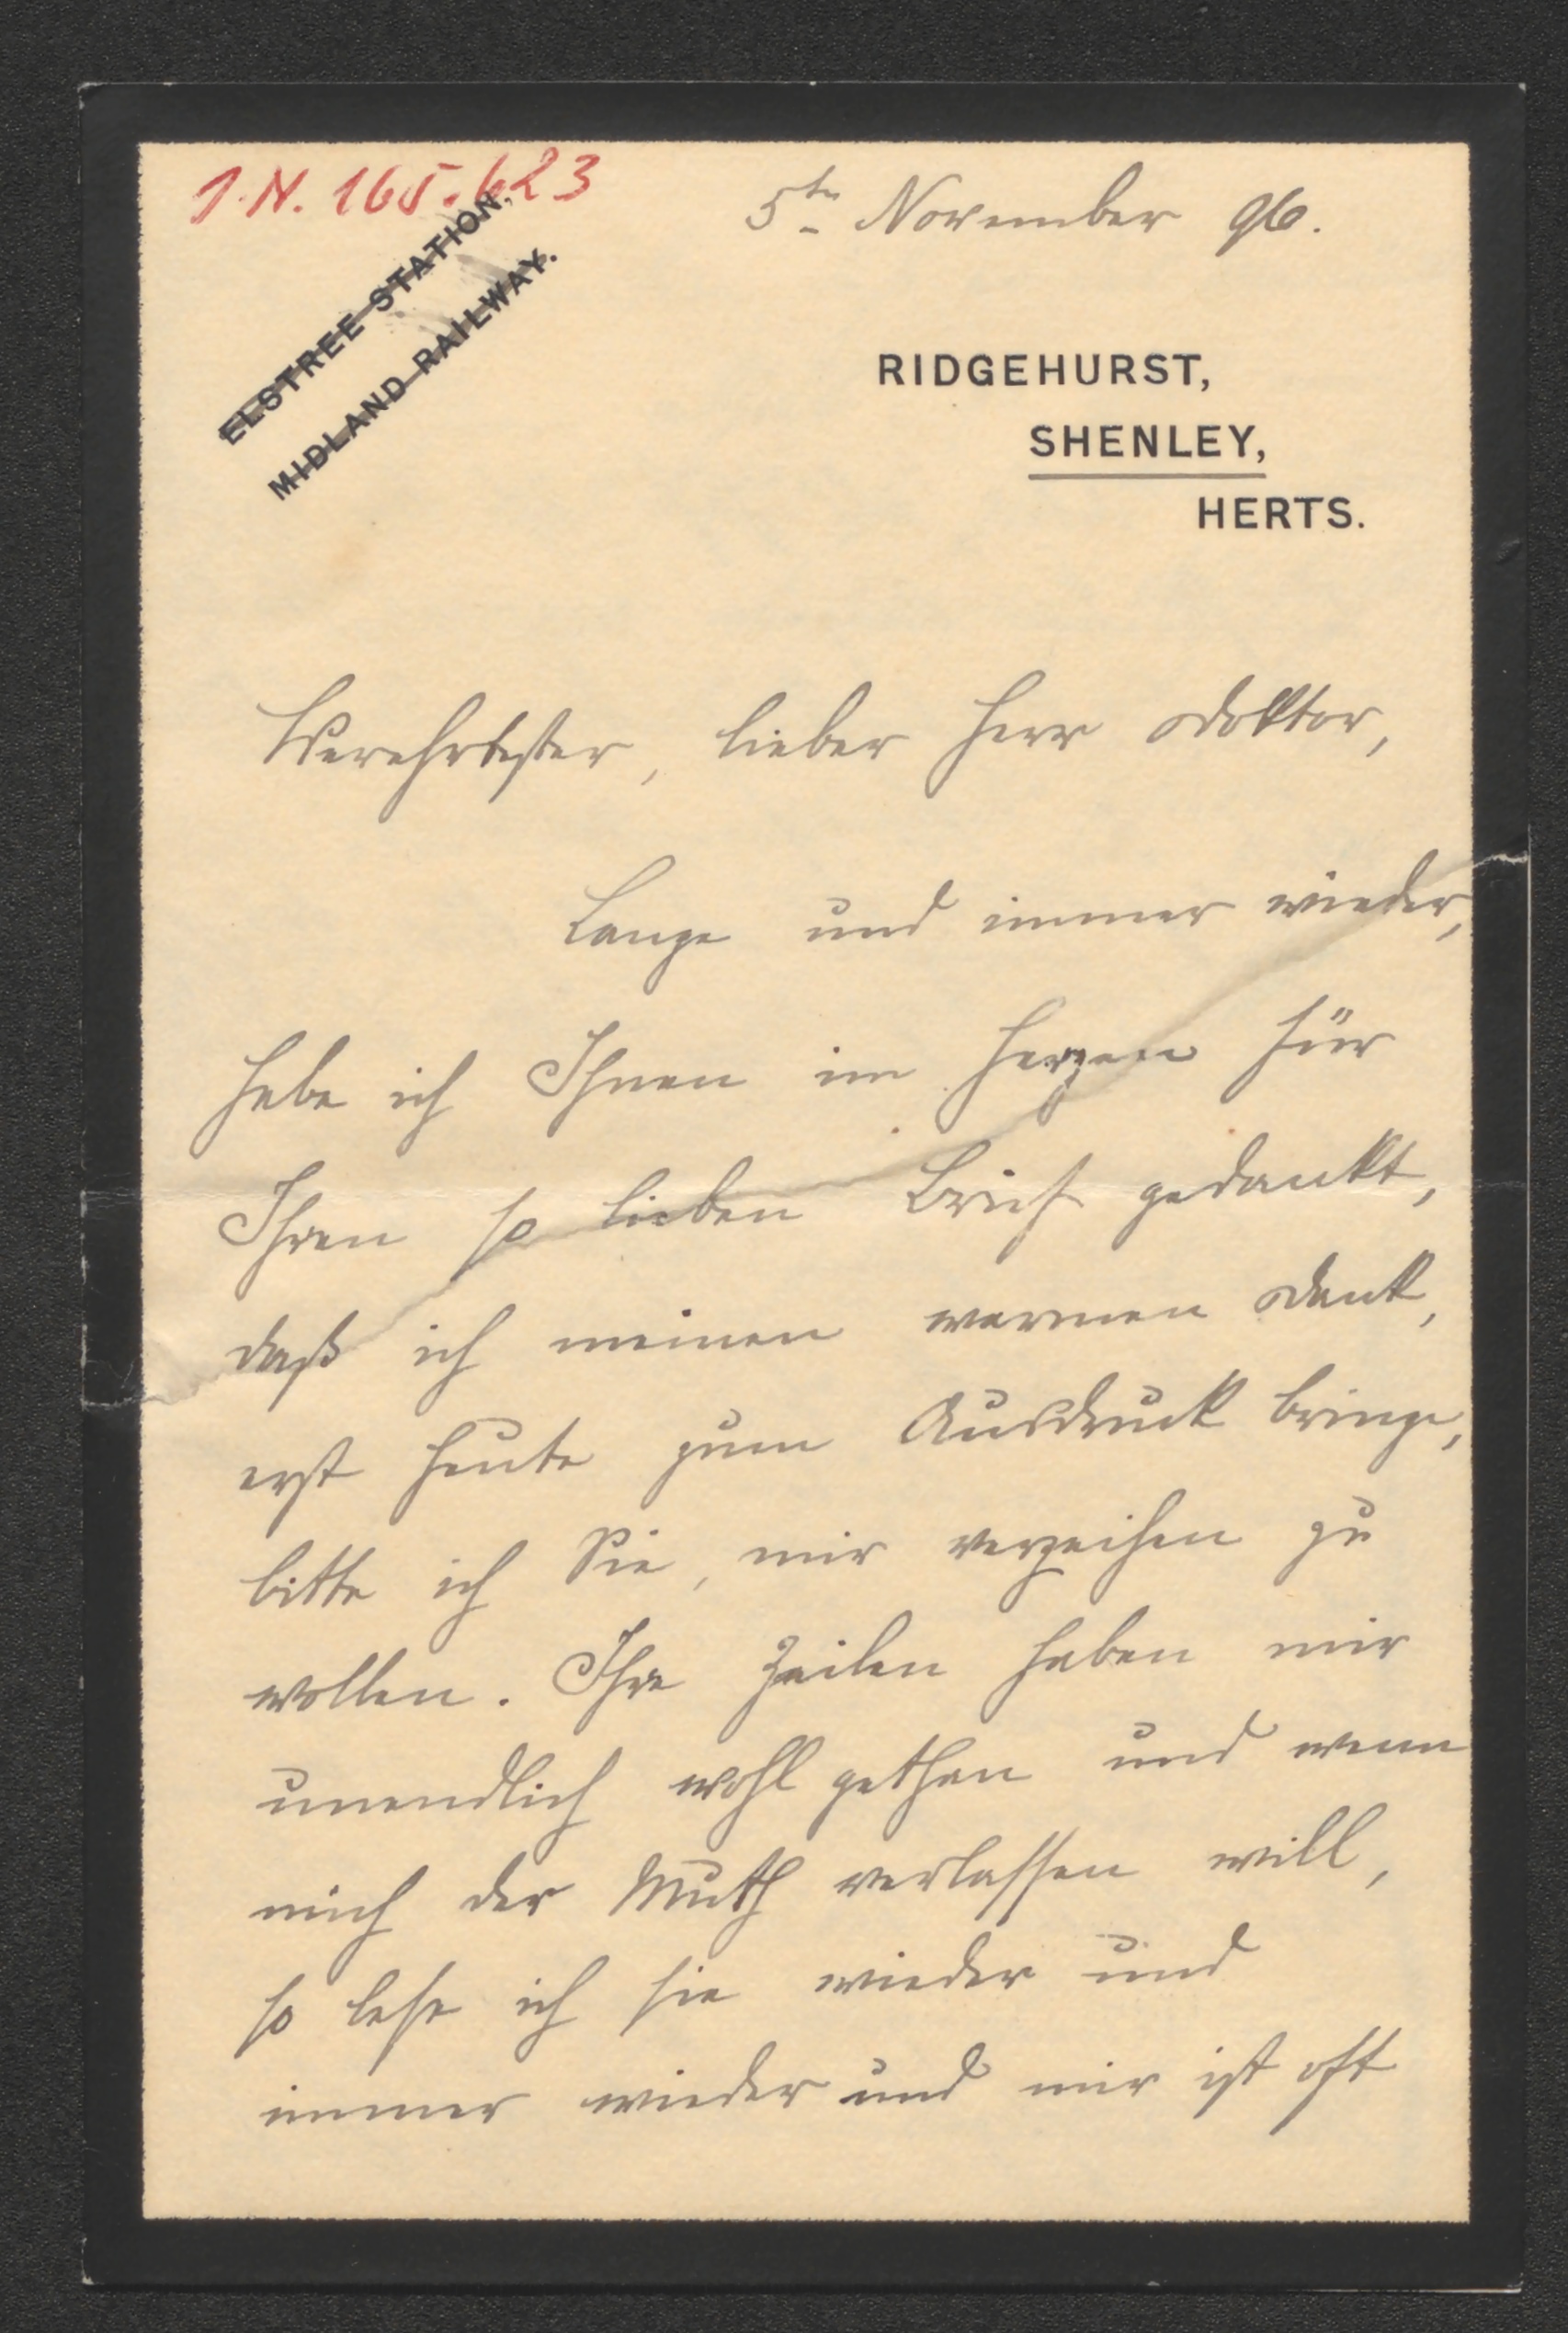 I.N. 165.623
5te November 96.
ELSTREE STATION,
MIDLAND RAILWAY.
RIDGEHURST,
SHENLEY,
HERTS.
Verehrtester, lieber Herr Doktor,
Lange und immer wieder,
habe ich Ihnen im Herzen für
Ihren so lieben Brief gedankt,
daß ich meinen warmen Dank,
erst heute zum Ausdruck bringe,
bitte ich Sie, mir verzeihen zu
wollen. Ihre Zeilen haben mir
unendlich wohl gethan und wenn
mich der Muth verlassen will,
so lese ich sie wieder und
immer wieder und mir ist oft